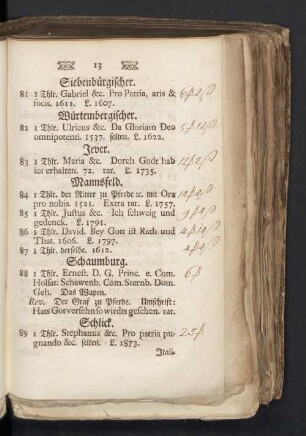 13
Siebenbürgischer.
81 1 Thlr. Gabriel &c. Pro Patria, aris &
focis. 1611. L. 1607.
Würtembergischer.
82 1 Thlr. Ulricus &c. Da Gloriam Deo
omnipotenti. 1537. selten. L. 1622.
Jever.
83 1 Thlr. Maria &c. Dorch Godt hab
ics erhalten. 72. rar. L. 1735.
Mannsfeld.
84 1 Thlr. der Ritter zu Pferde ꝛc. mit Ora
pro nobis. 1521. Extra rar. L. 1757.
85 1 Thlr. Justus &c. Ich schweig und
gedenck. L. 1791.
86 1 Thlr. David. Bey Gott ist Rath und
That. 1606. L. 1797.
87 1 Thlr. derselbe. 1612.
Schaumburg.
88 1 Thlr. Ernest. D. G. Princ. e. Com.
Holsat. Schawenb. Com. Sternb. Dom.
Geh. Das Wapen.
Rev. Der Graf zu Pferde. Umschrift:
Hats Gotversehn so wirdts geschen. rar.
Schlick.
89 1 Thlr. Stephanus &c. Pro patria pu-
gnando &c. selten. L. 1873.
Itali-